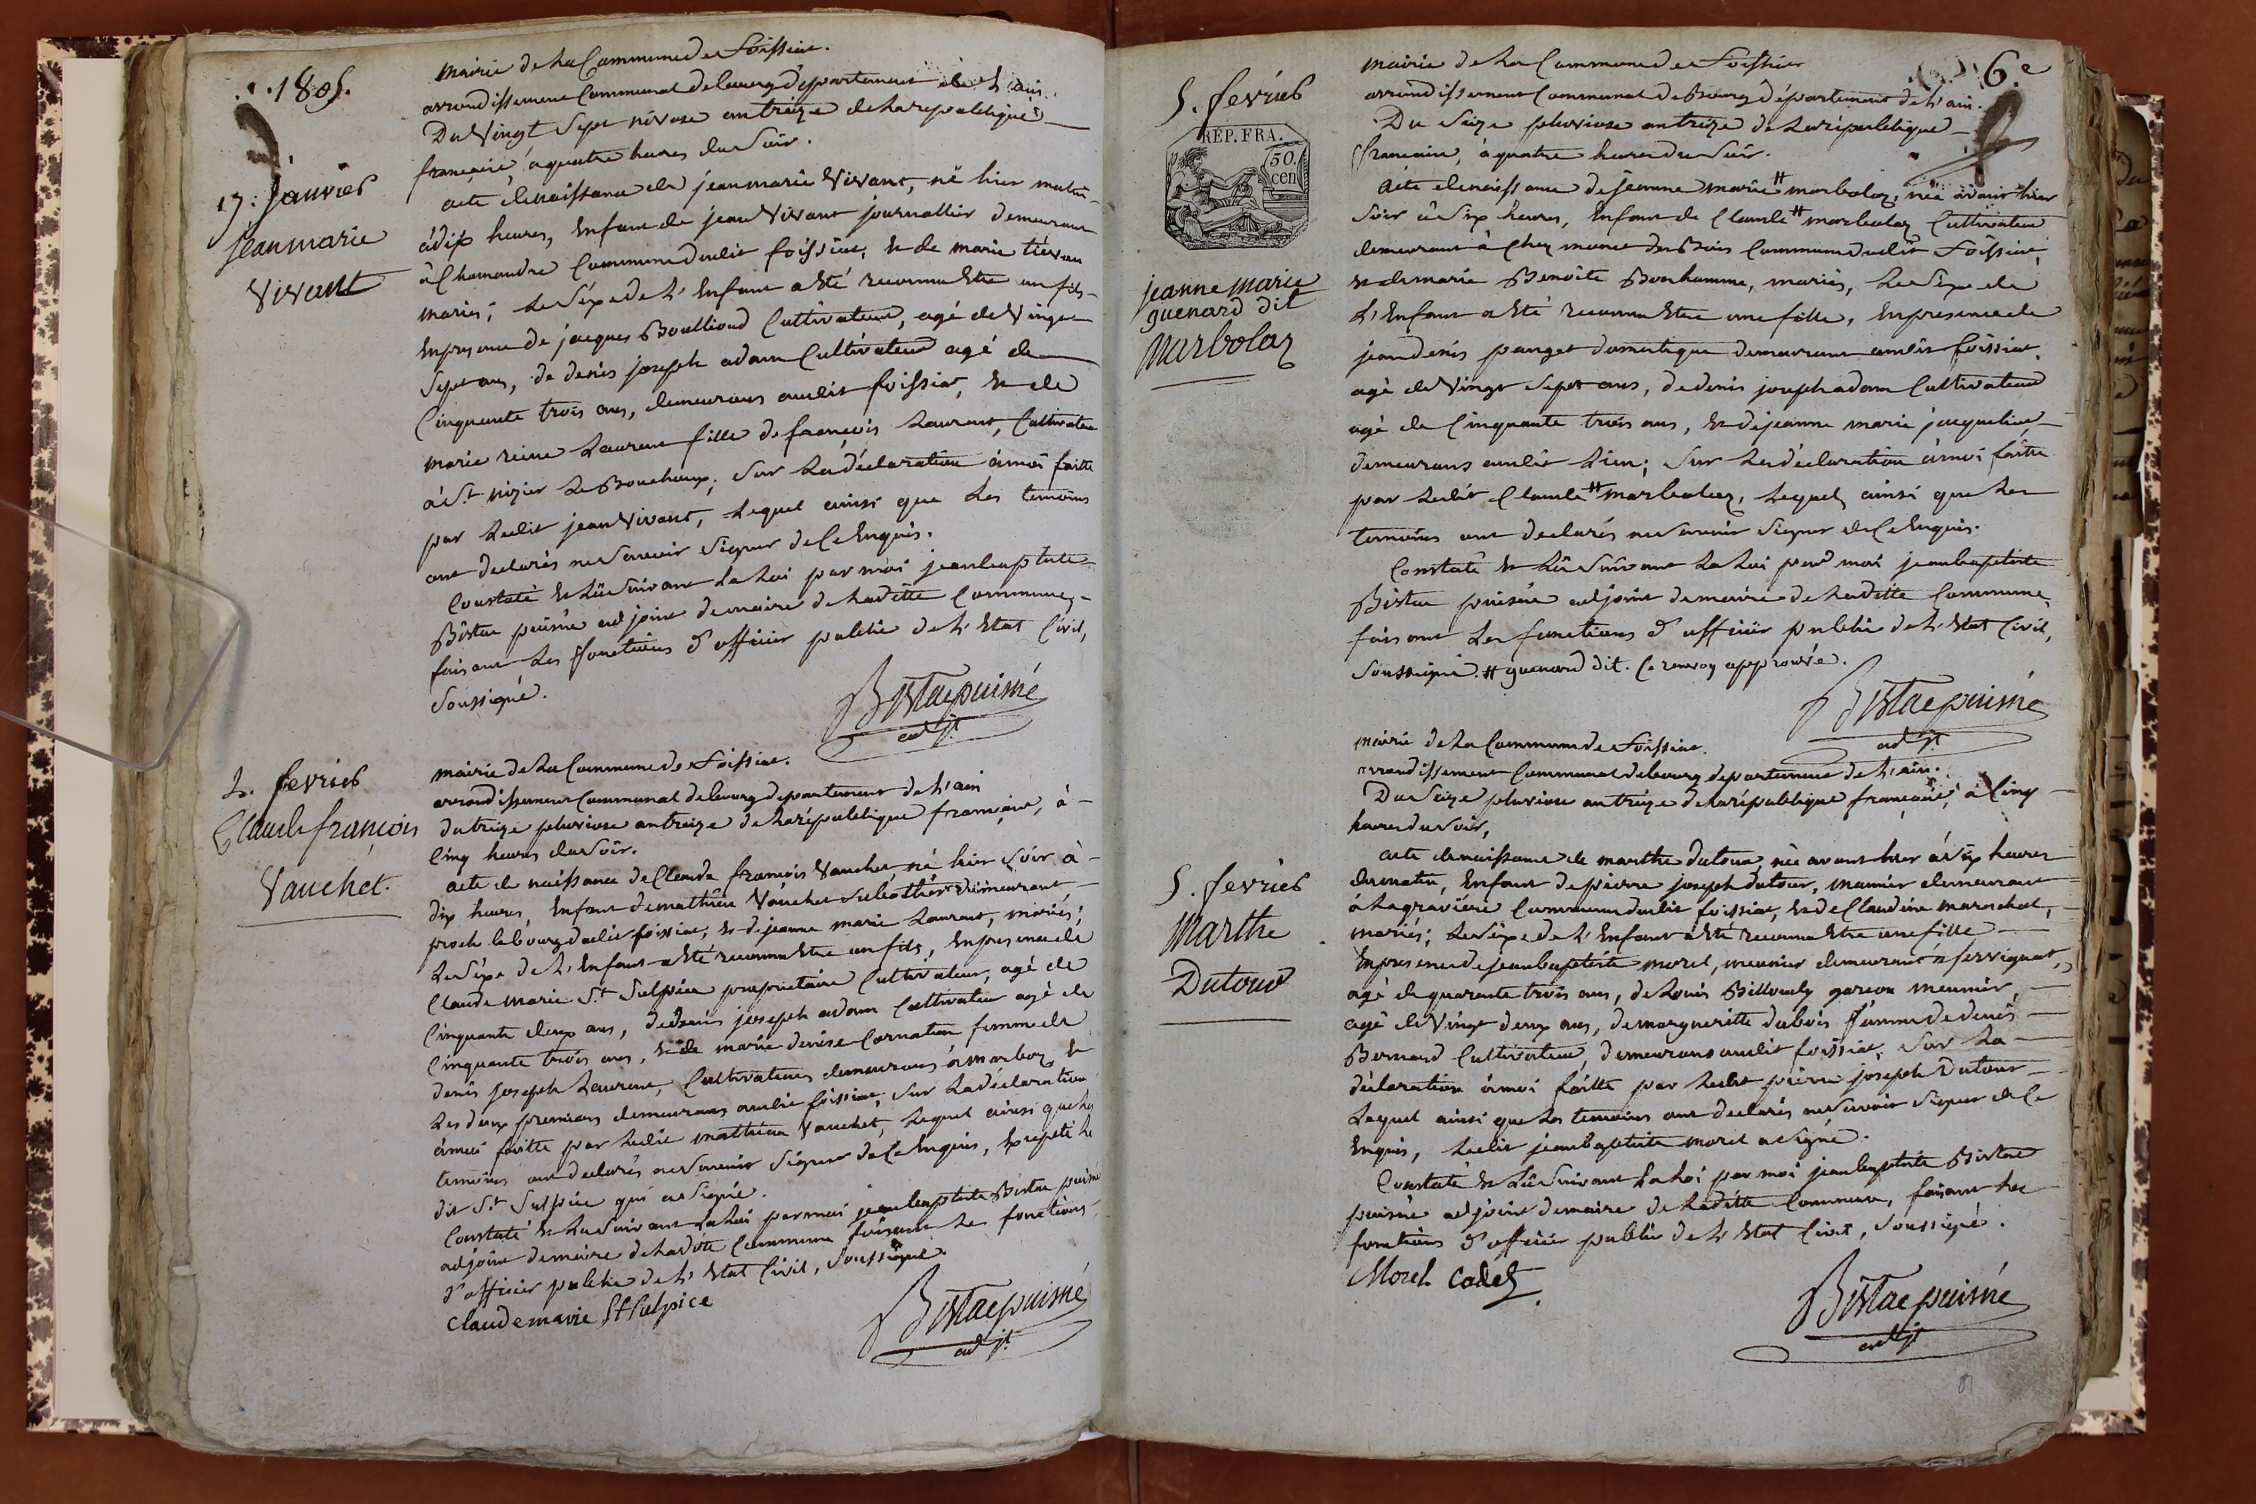 1805.
mairie de La Commune de Foissiat.
arrondissement Communal de bourg département de L'ain.
Du Vingt Sept nivose an treize de La republique
française, à quatre heures du Soir.
17. janvier
jean marie
Vivant
acte de naissance de jean marie Vivant, né hier matin
à dix heures, Enfant de jean Vivant journallier demeurant
à Chamandre Commune dudit foissiat, Et de marie
mariés; Le Sexe de L'Enfant a Eté reconnu Etre un fils
En presence de jacques Boullioud Cultivateur, agé de Vingt
Sept ans, de denis joseph adam Cultivateur agé de
Cinquante trois ans, demeurans audit foissiat, Et de
marie reine Laurent fille de françois Laurent, Cultivateur
à St nizier Le Bouchoux; Sur La déclaration à moi faitte
par Ledit jean Vivant, Lequel ainsi que Les temoins
ont declarés ne Savoir Signer de Ce Enquis.
Constaté Et Lû Suivant La Loi par moi jean baptiste
Bistac puisné adjoint de maire de Laditte Commune,
faisant Les fonctions d'officier public de L'Etat Civil,
Soussigné.
Bistac puisné
adjt
2. fevrier
Claude françois
Vauchet.
mairie de La Commune de Foissiat.
arrondissement Communal de bourg departement de L'ain
du treize pluviose an treize de La république française, à
Cinq heures du Soir.
acte de naissance de Claude françois Vauchet, né hier Soir à
dix heures, Enfant de mathieu Vauchet demeurant
proche le bourg dudit foissiat, Et de jeanne marie Laurent, mariés;
Le Sexe de L'Enfant a Eté reconnu Etre un fils, En presence de
Claude marie St Sulpice propriétaire Cultivateur, agé de
Cinquante deux ans, de denis joseph adam Cultivateur agé de
Cinquante trois ans, Et de marie denise Cornaton femme de
denis joseph Laurent, Cultivateurs demeurans à marboz, Et
Les deux premiers demeurans audit foissiat, Sur La déclaration
à moi faitte par Ledit mathieu Vauchet, Lequel ainsi que Les
temoins ont declarés ne Savoir Signer de Ce Enquis, Excepté Le
dit St Sulpice qui a Signé.
Constaté Et Lu Suivant La Loi par moi jean baptiste Bistac puisné
adjoint de maire de Laditte Commune faisant Les fonctions
d'officier public de L'Etat Civil, Soussigné.
Claude marie St Sulpice
Bistac puisné
adjt
6.e
5. fevrier
RÉP. FRA.
50.
cen
jeanne marie
guenard dit
Marbolaz
mairie de La Commune de Foissiat
arrondissement Communal de Bourg département de L'ain.
Du Seize pluviose an treize de La république
française, à quatre heures du Soir.
Acte de naissance de jeanne marie # marbolaz, née avant hier
Soir à Six heures, Enfant de Claude # marbolaz Cultivateur
demeurant à Chez Bois Commune dudit Foissiat,
Et de marie Benoite Bonhomme, mariés, Le Sexe de
L'Enfant a Eté reconnu Etre une fille, En presence de
jean denis panget domestique demeurant audit foissiat,
agé de Vingt Sept ans, de denis joseph adam Cultivateur
agé de Cinquante trois ans, Et de jeanne marie jacquelin
demeurans audit Lieu; Sur La déclaration à moi faitte
par Ledit Claude # marbolaz, Lequel ainsi que Les
temoins ont declarés ne Savoir Signer de Ce Enquis.
Constaté Et Lû Suivant La Loi par moi jean baptiste
Bistac puisné adjoint de maire de Laditte Commune,
faisant Les fonctions d'officier public de L'Etat Civil,
Soussigné. # guenard dit. Ce renvoy approuvée.
Bistac puisné
adjt
5. fevrier
Marthe
Dutour
mairie de La Commune de Foissiat.
arrondissement Communal de bourg departement de L'ain.
Du Seize pluviose an treize de La république française, à Cinq
heures du Soir,
acte de naissance de marthe dutour, née avant hier à Six heures
du matin, Enfant de pierre joseph dutour, meunier demeurant
à La gravière Commune dudit foissiat, Et de Claudine marechal,
mariés; Le Sexe de L'Enfant a Eté reconnu Etre une fille
En presence de jean baptiste morel, meunier demeurant à servignat,
agé de quarante trois ans, de Louis Billoudy garcon meunier,
agé de Vingt deux ans, de marguerite dubois femme de denis
Bernard Cultivateur, demeurans audit foissiat. Sur La
déclaration à moi faitte par Ledit pierre joseph Dutour
Lequel ainsi que Les temoins ont declarés ne Savoir Signer de Ce
Enquis, Ledit jean baptiste morel a Signé.
Constaté Et Lû Suivant La Loi par moi jean baptiste Bistac
puisné adjoint de maire de Laditte Commune, faisant Les
fonctions d'officier public de L'Etat Civil, Soussigné.
Morel Cadet
Bistac puisné
adjt